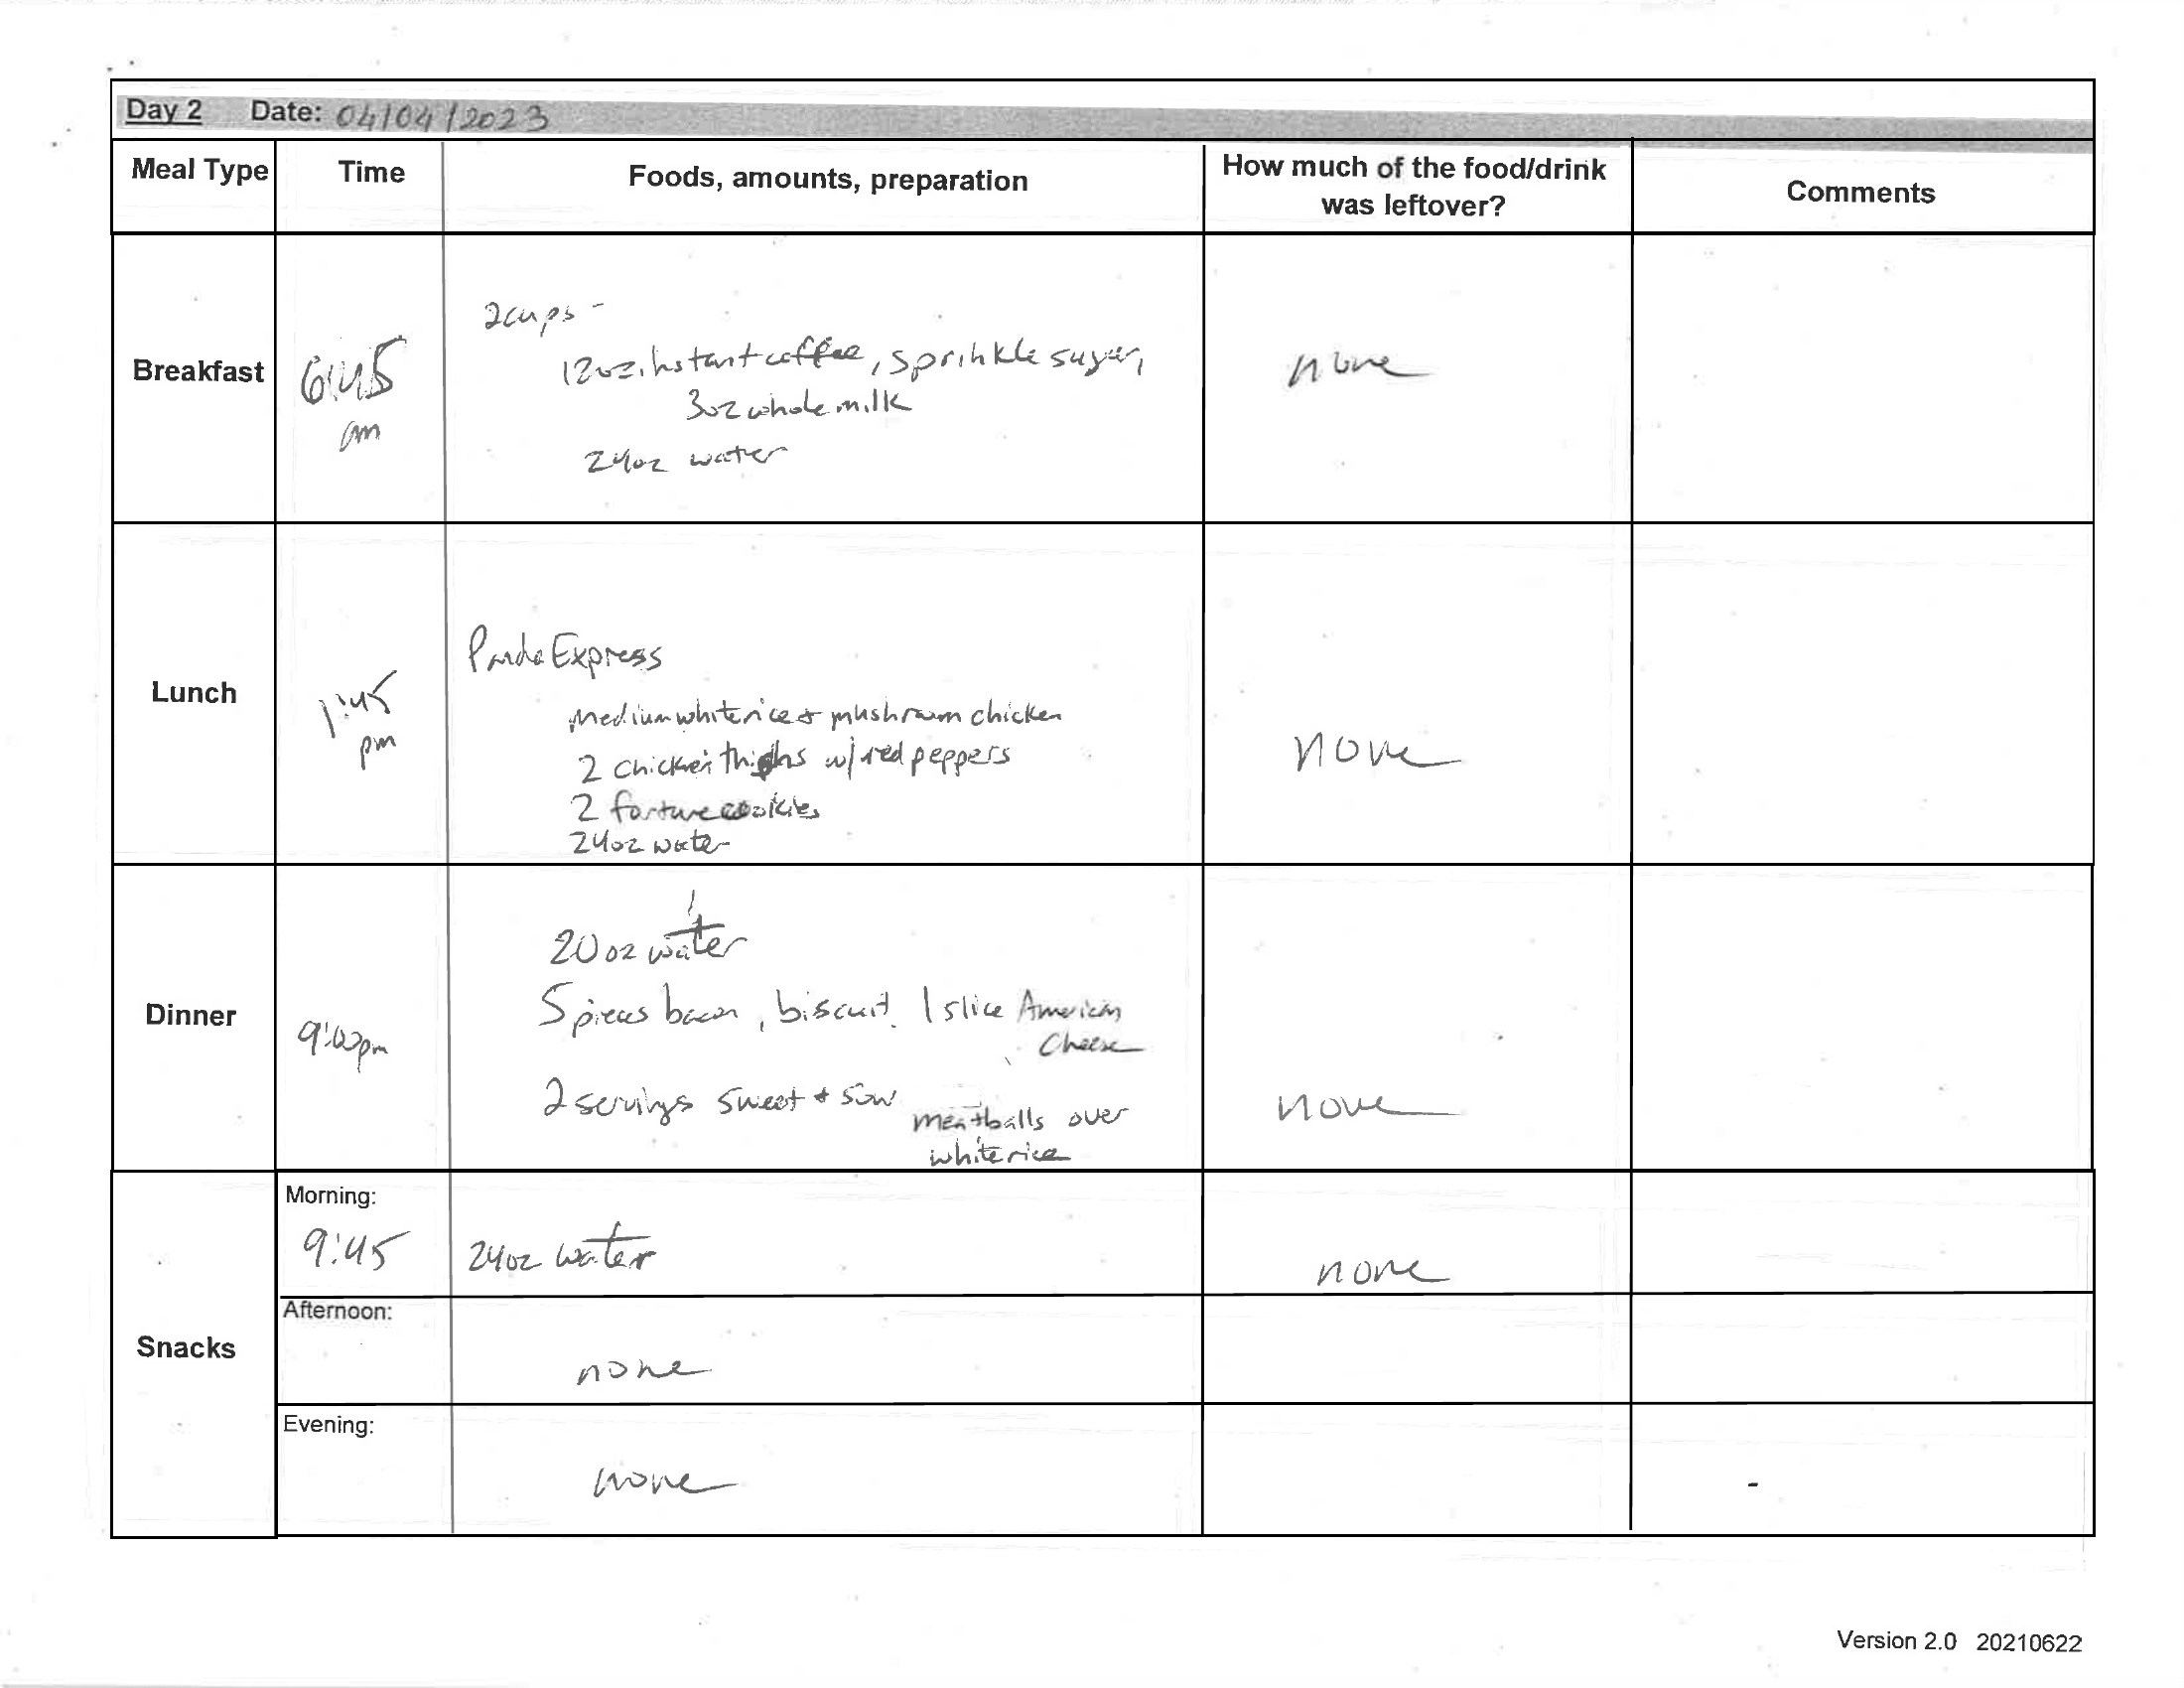 Day 2 Date: 04/04/2023
Meal Type Time Foods, amounts, preparation How much of the food/drink was leftover? Comments
Breakfast
6:45
am
2 cups -
12oz. instant coffee, sprinkle sugar,
3oz whole milk
24oz water
none
Lunch
1:45
pm
Panda Express
Medium white rice + mushroom chicken
2 chicken thighs w/ red peppers
2 fortune cookies
24oz water
none
Dinner
9:00pm
20 oz water
5 pieces bacon, biscuit, 1 slice American
Cheese
2 servings sweet + sour meatballs over
white rice
none
Snacks
Morning:
9:45 24oz water none
Afternoon:
none
Evening:
none
Version 2.0 20210622